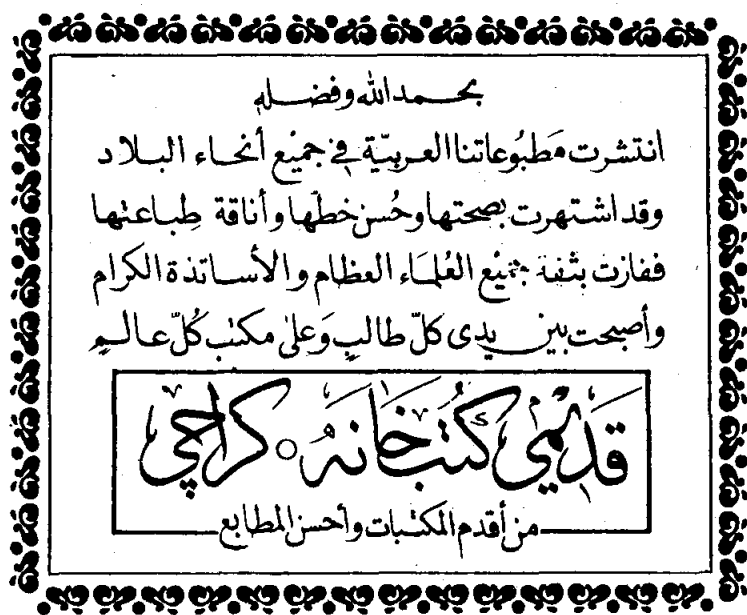 بحمد الله وفضله
انتشرت مَطبُوعاتنا العربيّة في جميْع أنحاء البلاد
وقد اشتهرت بصحتها وحُسن خطّها وأناقة طِباعتها
ففازت بثقة جميْع العُلمَاء العظام والأساتذة الكرام
وأصبحت بين يدى كلّ طالبٍ وَعلىٰ مكتب كُلّ عالمٍ
قديمي كتب خانه ○ كراچي
من أقدم المكتبات وأحسن المطابع